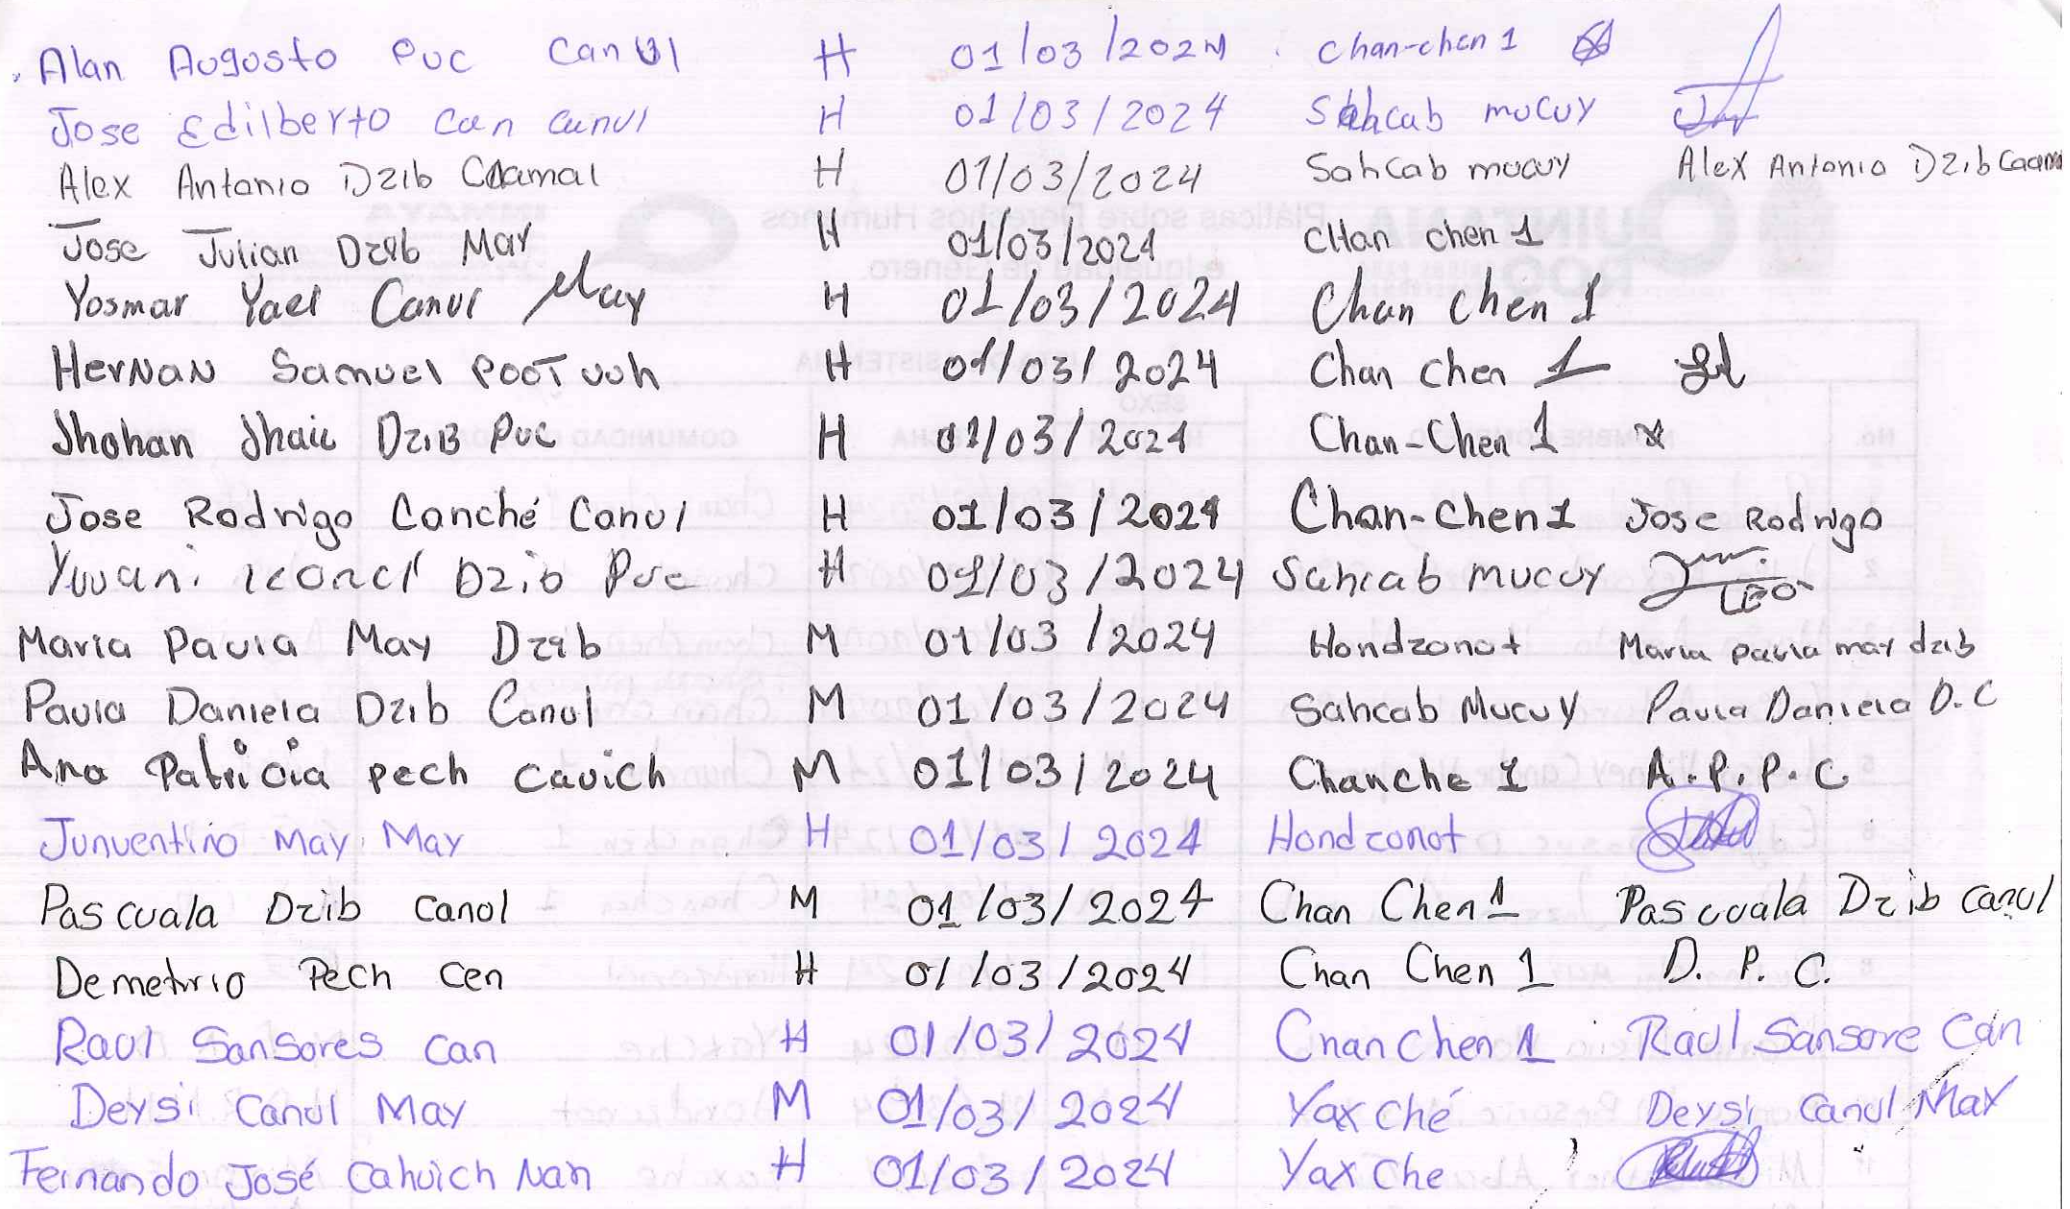 Alan Augusto Puc Canul H 01/03/2024 Chan-chen 1
Jose Edilberto Can Canul H 01/03/2024 Sahcab mucuy
Alex Antonio Dzib Caamal H 01/03/2024 Sahcab mucuy Alex Antonio Dzib Caam
Jose Julian Dzib May H 01/03/2024 Chan chen 1
Yosmar Yael Canul May H 01/03/2024 Chan Chen 1
HerNaN Samuel Poot uuh H 01/03/2024 Chan chen 1
Jhohan Jhair DziB Puc H 01/03/2024 Chan-Chen 1
Jose Rodrigo Canché Canul H 01/03/2024 Chan-Chen 1 Jose Rodrigo
Yuvani Dzib Puc H 01/03/2024 Sahcab mucuy
Maria Paula May Dzib M 01/03/2024 Hondzonot Maria paula may dzib
Paula Daniela Dzib Canul M 01/03/2024 Sahcab Mucuy Paula Daniela D.C
Ana Patricia pech cauich M 01/03/2024 Chanche 1 A.P.P.C
Junventino May May H 01/03/2024 Hondzonot
Pascuala Dzib canol M 01/03/2024 Chan Chen 1 Pascuala Dzib canul
Demetrio Pech cen H 01/03/2024 Chan Chen 1 D. P. C.
Raul Sansores can H 01/03/2024 Chan Chen 1 Raul Sansore Can
Deysi Canul May M 01/03/2024 Yax Ché Deysi Canul May
Fernando José Cahuich Nah H 01/03/2024 Yax Che